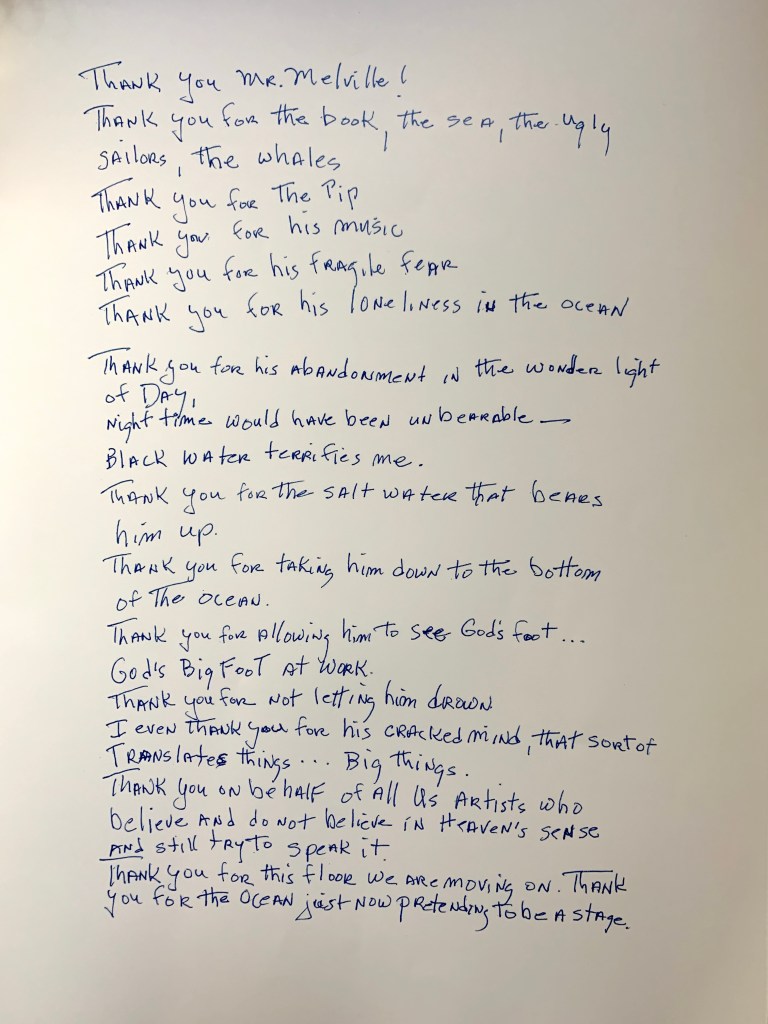 Thank you Mr. Melville!
Thank you for the book, the sea, the ugly
sailors, the whales
Thank you for The Pip
Thank you for his music
Thank you for his fragile fear
Thank you for his loneliness in the ocean
Thank you for his abandonment in the wonder light
of Day,
Night time would have been unbearable —
Black water terrifies me.
Thank you for the salt water that bears
him up.
Thank you for taking him down to the bottom
of The ocean.
Thank you for allowing him to see God's foot...
God's Big Foot at work.
Thank you for not letting him drown
I even thank you for his cracked mind, that sort of
Translates things... Big things.
Thank you on behalf of all us artists who
believe and do not believe in Heaven's sense
and still try to speak it.
Thank you for this floor we are moving on. Thank
you for the ocean just now pretending to be a stage.